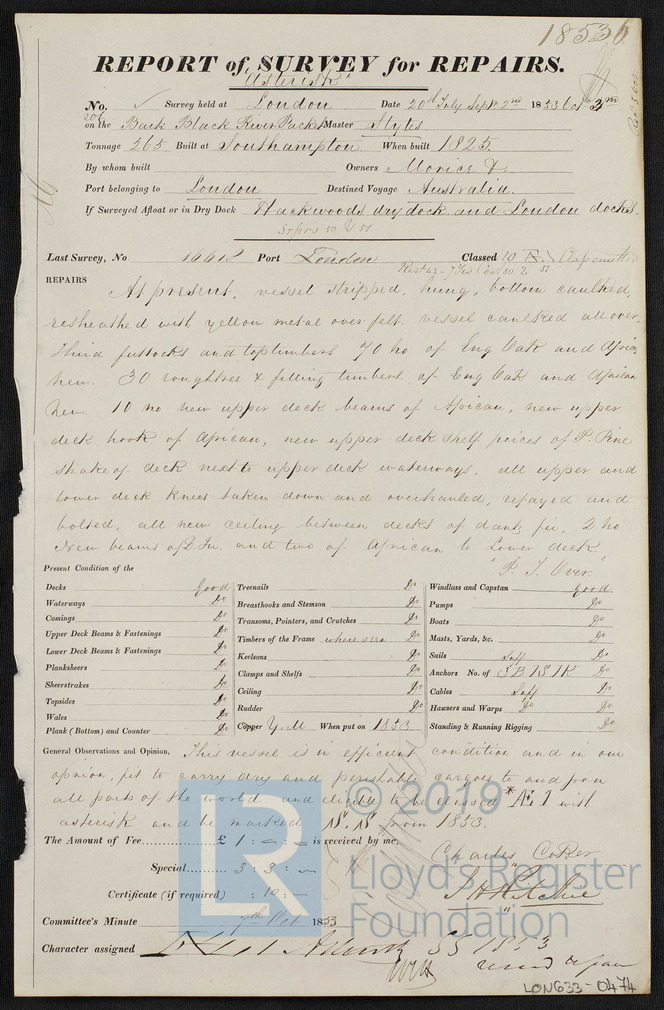 18536
REPORT of SURVEY for REPAIRS.
"Asterisk"
No. Survey held at London Date 20th July Sept. 2nd 1853 Oct 3rd
on the Bark Black River Packet Master Styles
Tonnage 265 Built at Southampton When built 1825
By whom built Owners Morice &
Port belonging to London Destined Voyage Australia.
If Surveyed Afloat or in Dry Dock Hackwoods dry dock and London docks.
Last Survey, No Port London Classed 10
REPAIRS At present, vessel stripped, hung, bottom caulked,
resheathed with yellow metal over felt. vessel caulked all over,
third futtocks and toptimbers 70 no of Eng Oak and African
new. 30 roughtrees & filling timbers of Eng Oak and African
new 10 no new upper deck beams of African, new upper
deck hook of African, new upper deck shelf peices of P. Pine
strake of deck next to upper deck waterways, all upper and
lower deck knees taken down and overhauled, refayed and
bolted, all new ceiling between decks of dantz fir, 2 no
New beams of D. Fir and two of African to Lower deck.
"P. T. Over."
Present Condition of the
Decks good
Waterways Do
Comings Do
Upper Deck Beams & Fastenings Do
Lower Deck Beams & Fastenings Do
Planksheers Do
Sheerstrakes Do
Topsides Do
Wales Do
Plank (Bottom) and Counter Do
Treenails Do
Breasthooks and Stemson Do
Transoms, Pointers, and Crutches Do
Timbers of the Frame where seen Do
Keelsons Do
Clamps and Shelfs Do
Ceiling Do
Rudder Do
Copper Y.M When put on 1853
Windlass and Capstan good
Pumps Do
Boats Do
Masts, Yards, &c. Do
Sails Suff Do
Anchors No. of 3 B 1 S 1 K Do
Cables Suff Do
Hawsers and Warps Do Do
Standing & Running Rigging Do
General Observations and Opinion, This vessel is in efficient condition and in our
opinion, fit to carry dry and perishable cargoes to and from
all parts of the world and eligible to be classed *Æ 1 with
asterisk and be marked from 1853.
The Amount of Fee £ 1 : - : - is received by me,
Charles Coker
Special 3 : 3 : -
J H Ritchie
Certificate (if required) : 10 : -
Committee's Minute 7th Oct 1853
Character assigned 1853
LON633-0474
© 2019
LR
Lloyd's Register
Foundation